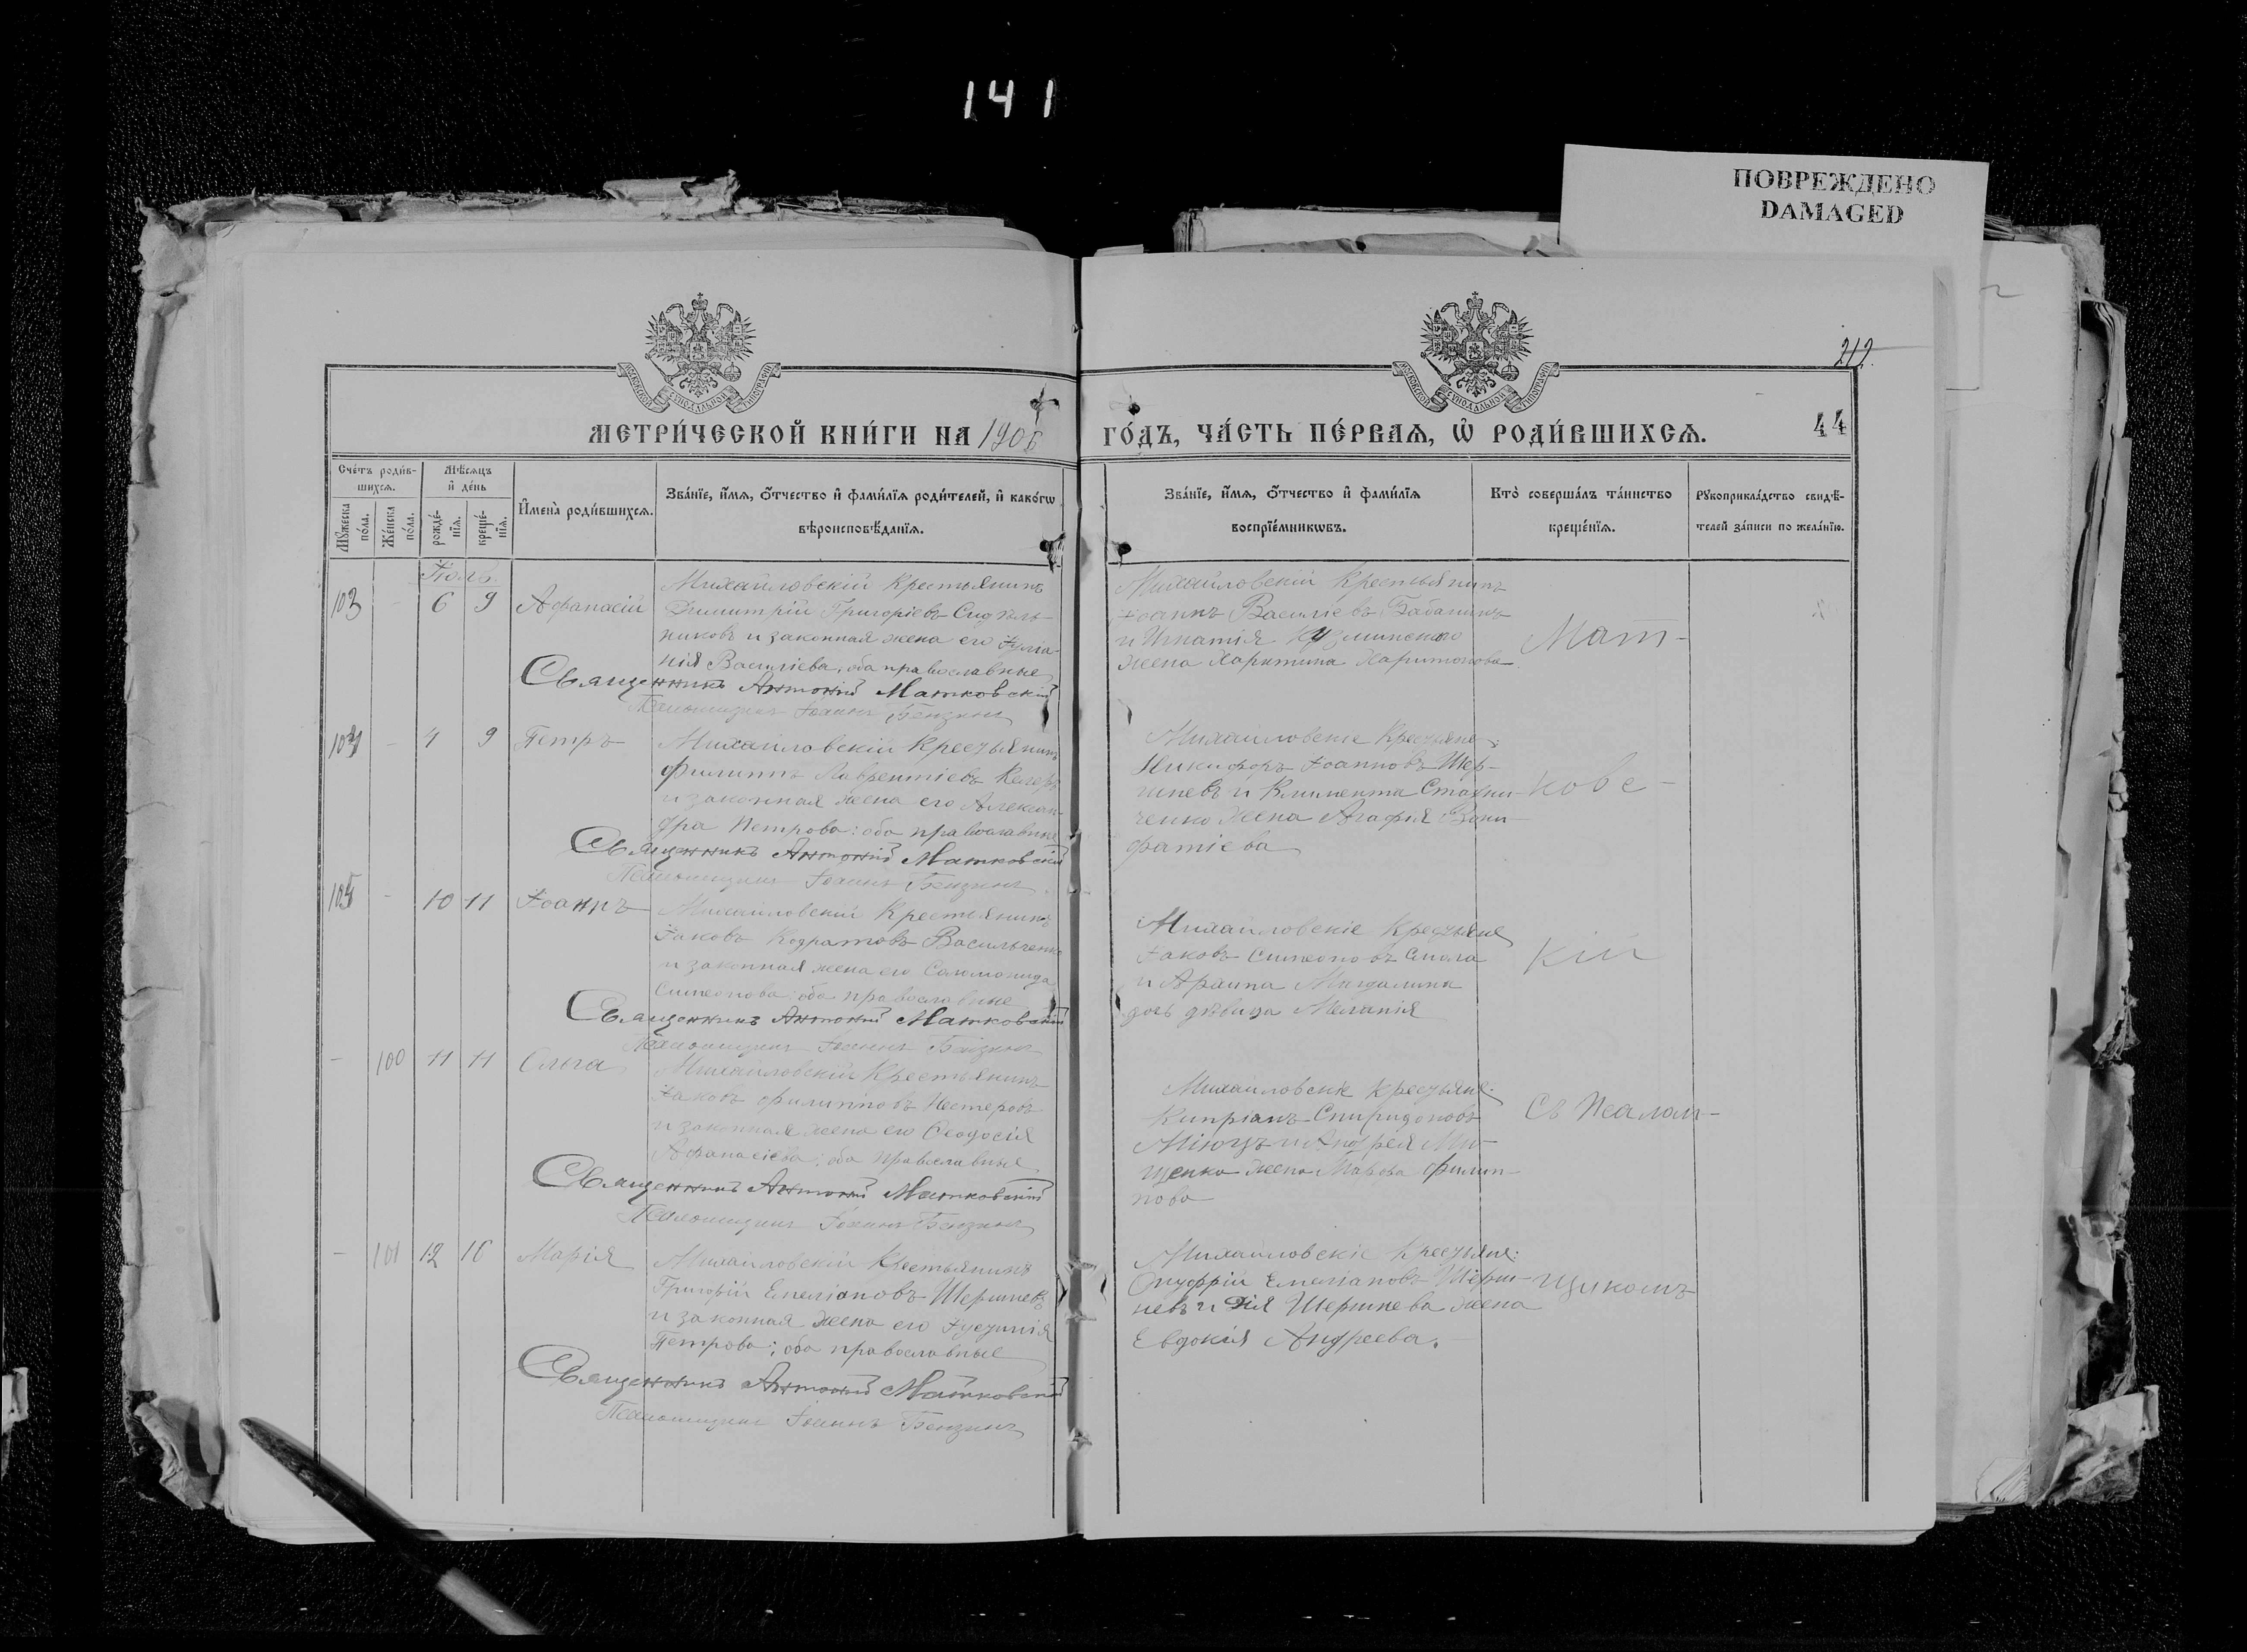 141
ПОВРЕЖДЕНО
DAMAGED
212.
44
МЕТРИ́ЧЕСКОЙ КНИ́ГИ НА 1906
ГО́ДЪ, ЧА́СТЬ ПЕ́РВАѦ, Ѡ҆ РОДИ́ВШИХСѦ.
Сче́тъ роди́в-
шихсѧ.
Мꙋ́жеска по́ла.
Же́нска по́ла.
Мѣ́сѧцъ
и҆ де́нь
рожде́-
нїѧ.
креще́-
нїѧ.
И҆мена̀ роди́вшихсѧ.
Зва́нїе, и҆́мѧ, ѻ҆́тчество и҆ фами́лїѧ роди́телей, и҆ како́гѡ
вѣроисповѣ́данїѧ.
Зва́нїе, и҆́мѧ, ѻ҆́тчество и҆ фами́лїѧ
воспрїе́мникѡвъ.
Кто̀ соверша́лъ та́инство
креще́нїѧ.
Рꙋкоприкла́дство свидѣ́-
телей за́писи по жела́нїю.
Іюль
103 - 6 9 Афанасій
Михайловскій крестьянинъ
Димитрій Григоріевъ Сидѣль-
никовъ и законная жена его Іуліа-
нія Василіева, оба православные
Священникъ Антоній Матковскій
Псаломщикъ Іоаннъ Бензинъ
Михайловскій крестьянинъ
Іоаннъ Василіевъ Бабанинъ
и Игнатія Кузминскаго
жена Харитина Харитонова
Мат-
104 - 9 Петръ
Михайловскій крестьянинъ
Филиппъ Лаврентіевъ
и законная жена его Алексан-
дра Петрова: оба православные
Священникъ Антоній Матковскій
Псаломщикъ Іоаннъ Бензинъ
Михайловскіе крестьяне:
Никифоръ Іоанновъ Шер-
шневъ и Климента Стахни-
ченко жена Агафія Вони-
фатіева
кове-
105 - 10 11 Іоаннъ
Михайловскій крестьянинъ
Іаковъ Кодратовъ Васильченко
и законная жена его Соломонида
Симеонова: оба православные
Священникъ Антоній Матковскій
Псаломщикъ Іоаннъ Бензинъ
Михайловскіе крестьяне
Іаковъ Симеоновъ
и
дочь дѣвица Меланія
кій
- 100 11 11 Ольга
Михайловскій крестьянинъ
Іаковъ Филипповъ Нестеровъ
и законная жена его Ѳеодосія
Афанасіева; оба православные
Священникъ Антоній Матковскій
Псаломщикъ Іоаннъ Бензинъ
Михайловскіе крестьяне:
Кипріанъ Спиридоновъ
и Андрея Ми-
щенко жена Марфа Филип-
пова
съ Псалом-
- 101 12 Марія
Михайловскій крестьянинъ
Григорій Емеліановъ Шершневъ
и законная жена его Іустинія
Петрова; оба православные
Священникъ Антоній Матковскій
Псаломщикъ Іоаннъ Бензинъ
Михайловскіе крестьяне:
Онуфрій Емеліановъ Шерш-
невъ и Шершнева жена
Евдокія Андреева.
щикомъ